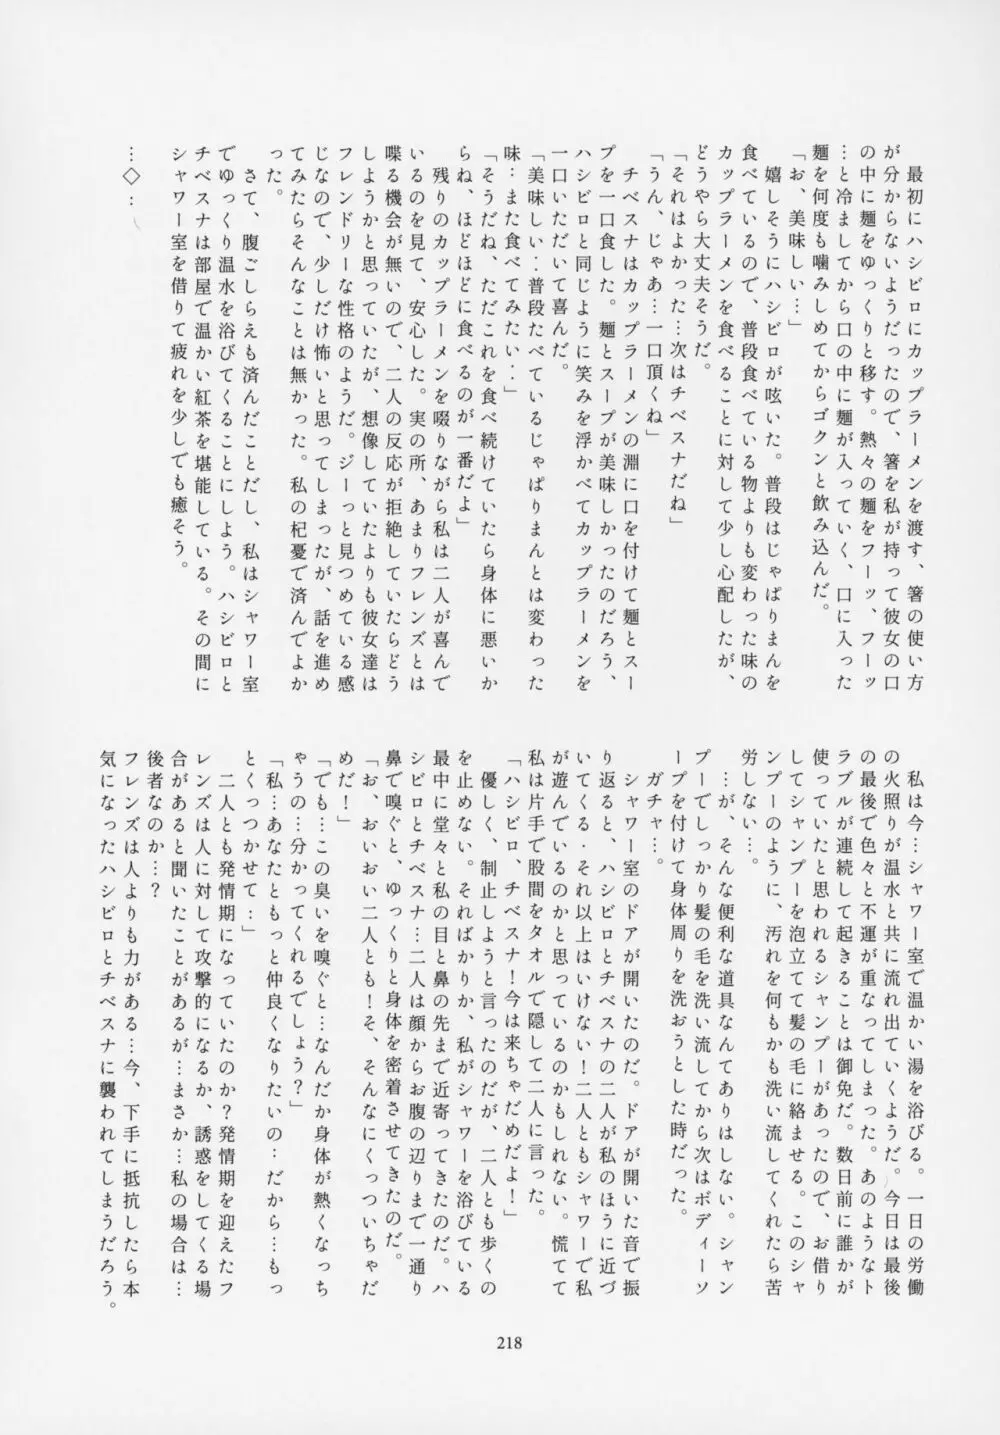 最初にハシビロにカップラーメンを渡す、箸の使い方
が分からないようだったので、箸を私が持って彼女の口
の中に麺をゆっくりと移す。熱々の麺をフーッ、フーッ
…と冷ましてから口の中に麺が入っていく、口に入った
麺を何度も噛みしめてからゴクンと飲み込んだ。
「お、美味しい…」
嬉しそうにハシビロが呟いた。普段はじゃぱりまんを
食べているので、普段食べている物よりも変わった味の
カップラーメンを食べることに対して少し心配したが、
どうやら大丈夫そうだ。
「それはよかった…次はチベスナだね」
「うん、じゃあ…一口頂くね」
チベスナはカップラーメンの淵に口を付けて麺とスー
プを一口食した。麺とスープが美味しかったのだろう、
ハシビロと同じように笑みを浮かべてカップラーメンを
一口いただいて喜んだ。
「美味しい…普段たべているじゃぱりまんとは変わった
味…また食べてみたい…」
「そうだね、ただこれを食べ続けていたら身体に悪いか
らね、ほどほどに食べるのが一番だよ」
残りのカップラーメンを啜りながら私は二人が喜んで
いるのを見て、安心した。実の所、あまりフレンズとは
喋る機会が無いので、二人の反応が拒絶していたらどう
しようかと思っていたが、想像していたよりも彼女達は
フレンドリーな性格のようだ。ジーっと見つめている感
じなので、少しだけ怖いと思ってしまったが、話を進め
てみたらそんなことは無かった。私の杞憂で済んでよか
った。
さて、腹ごしらえも済んだことだし、私はシャワー室
でゆっくり温水を浴びてくることにしよう。ハシビロと
チベスナは部屋で温かい紅茶を堪能している。その間に
シャワー室を借りて疲れを少しでも癒そう。
…◇…
私は今…シャワー室で温かい湯を浴びる。一日の労働
の火照りが温水と共に流れ出ていくようだ。今日は最後
の最後で色々と不運が重なってしまった。あのようなト
ラブルが連続して起きることは御免だ。数日前に誰かが
使っていたと思われるシャンプーがあったので、お借り
してシャンプーを泡立てて髪の毛に絡ませる。このシャ
ンプーのように、汚れを何もかも洗い流してくれたら苦
労しない…。
…が、そんな便利な道具なんてありはしない。シャン
プーでしっかり髪の毛を洗い流してから次はボディーソ
ープを付けて身体周りを洗おうとした時だった。
ガチャ…。
シャワー室のドアが開いたのだ。ドアが開いた音で振
り返ると、ハシビロとチベスナの二人が私のほうに近づ
いてくる…それ以上はいけない！二人ともシャワーで私
が遊んでいるのかと思っているのかもしれない。慌てて
私は片手で股間をタオルで隠して二人に言った。
「ハシビロ、チベスナ！今は来ちゃだめだよ！」
優しく、制止しようと言ったのだが、二人とも歩くの
を止めない。そればかりか、私がシャワーを浴びている
最中に堂々と私の目と鼻の先まで近寄ってきたのだ。ハ
シビロとチベスナ…二人は顔からお腹の辺りまで一通り
鼻で嗅ぐと、ゆっくりと身体を密着させてきたのだ。
「お、おいおい二人とも！そ、そんなにくっついちゃだ
めだ！」
「でも…この臭いを嗅ぐと…なんだか身体が熱くなっち
ゃうの…分かってくれるでしょう？」
「私…あなたともっと仲良くなりたいの…だから…もっ
とくっつかせて…」
二人とも発情期になっていたのか？発情期を迎えたフ
レンズは人に対して攻撃的になるか、誘惑をしてくる場
合があると聞いたことがあるが…まさか…私の場合は…
後者なのか…？
フレンズは人よりも力がある…今、下手に抵抗したら本
気になったハシビロとチベスナに襲われてしまうだろう。
218